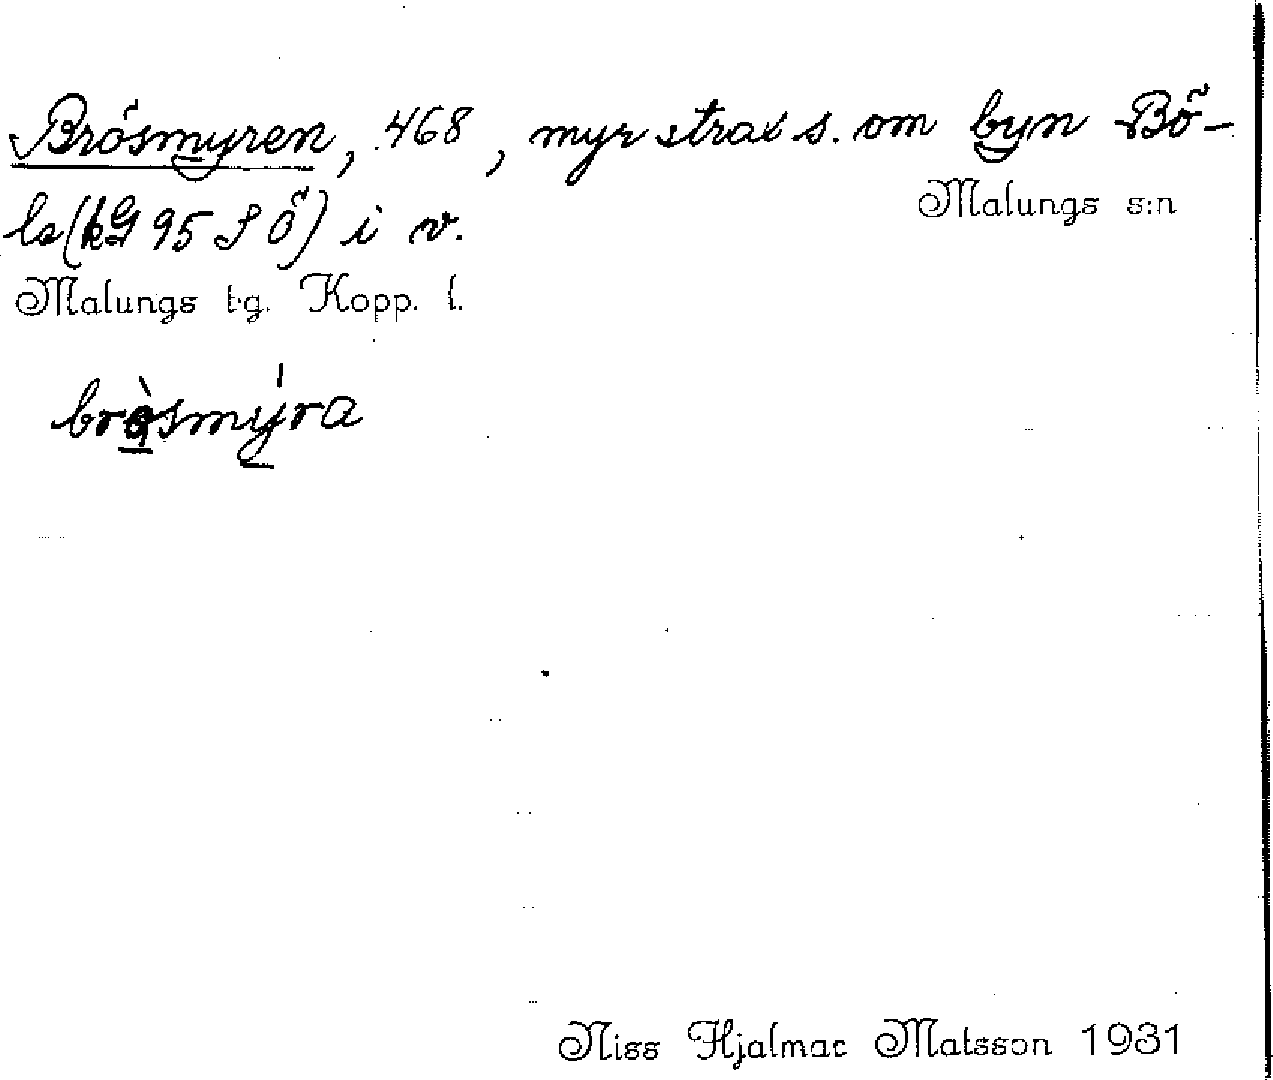 Brösmyren, 468, myr strax s. om byn Bö-
Malungs s:n
le (kG 95 S Ö) i v.
Malungs tg. Kopp. l.
bròsmýra
Niss Hjalmar Matsson 1931